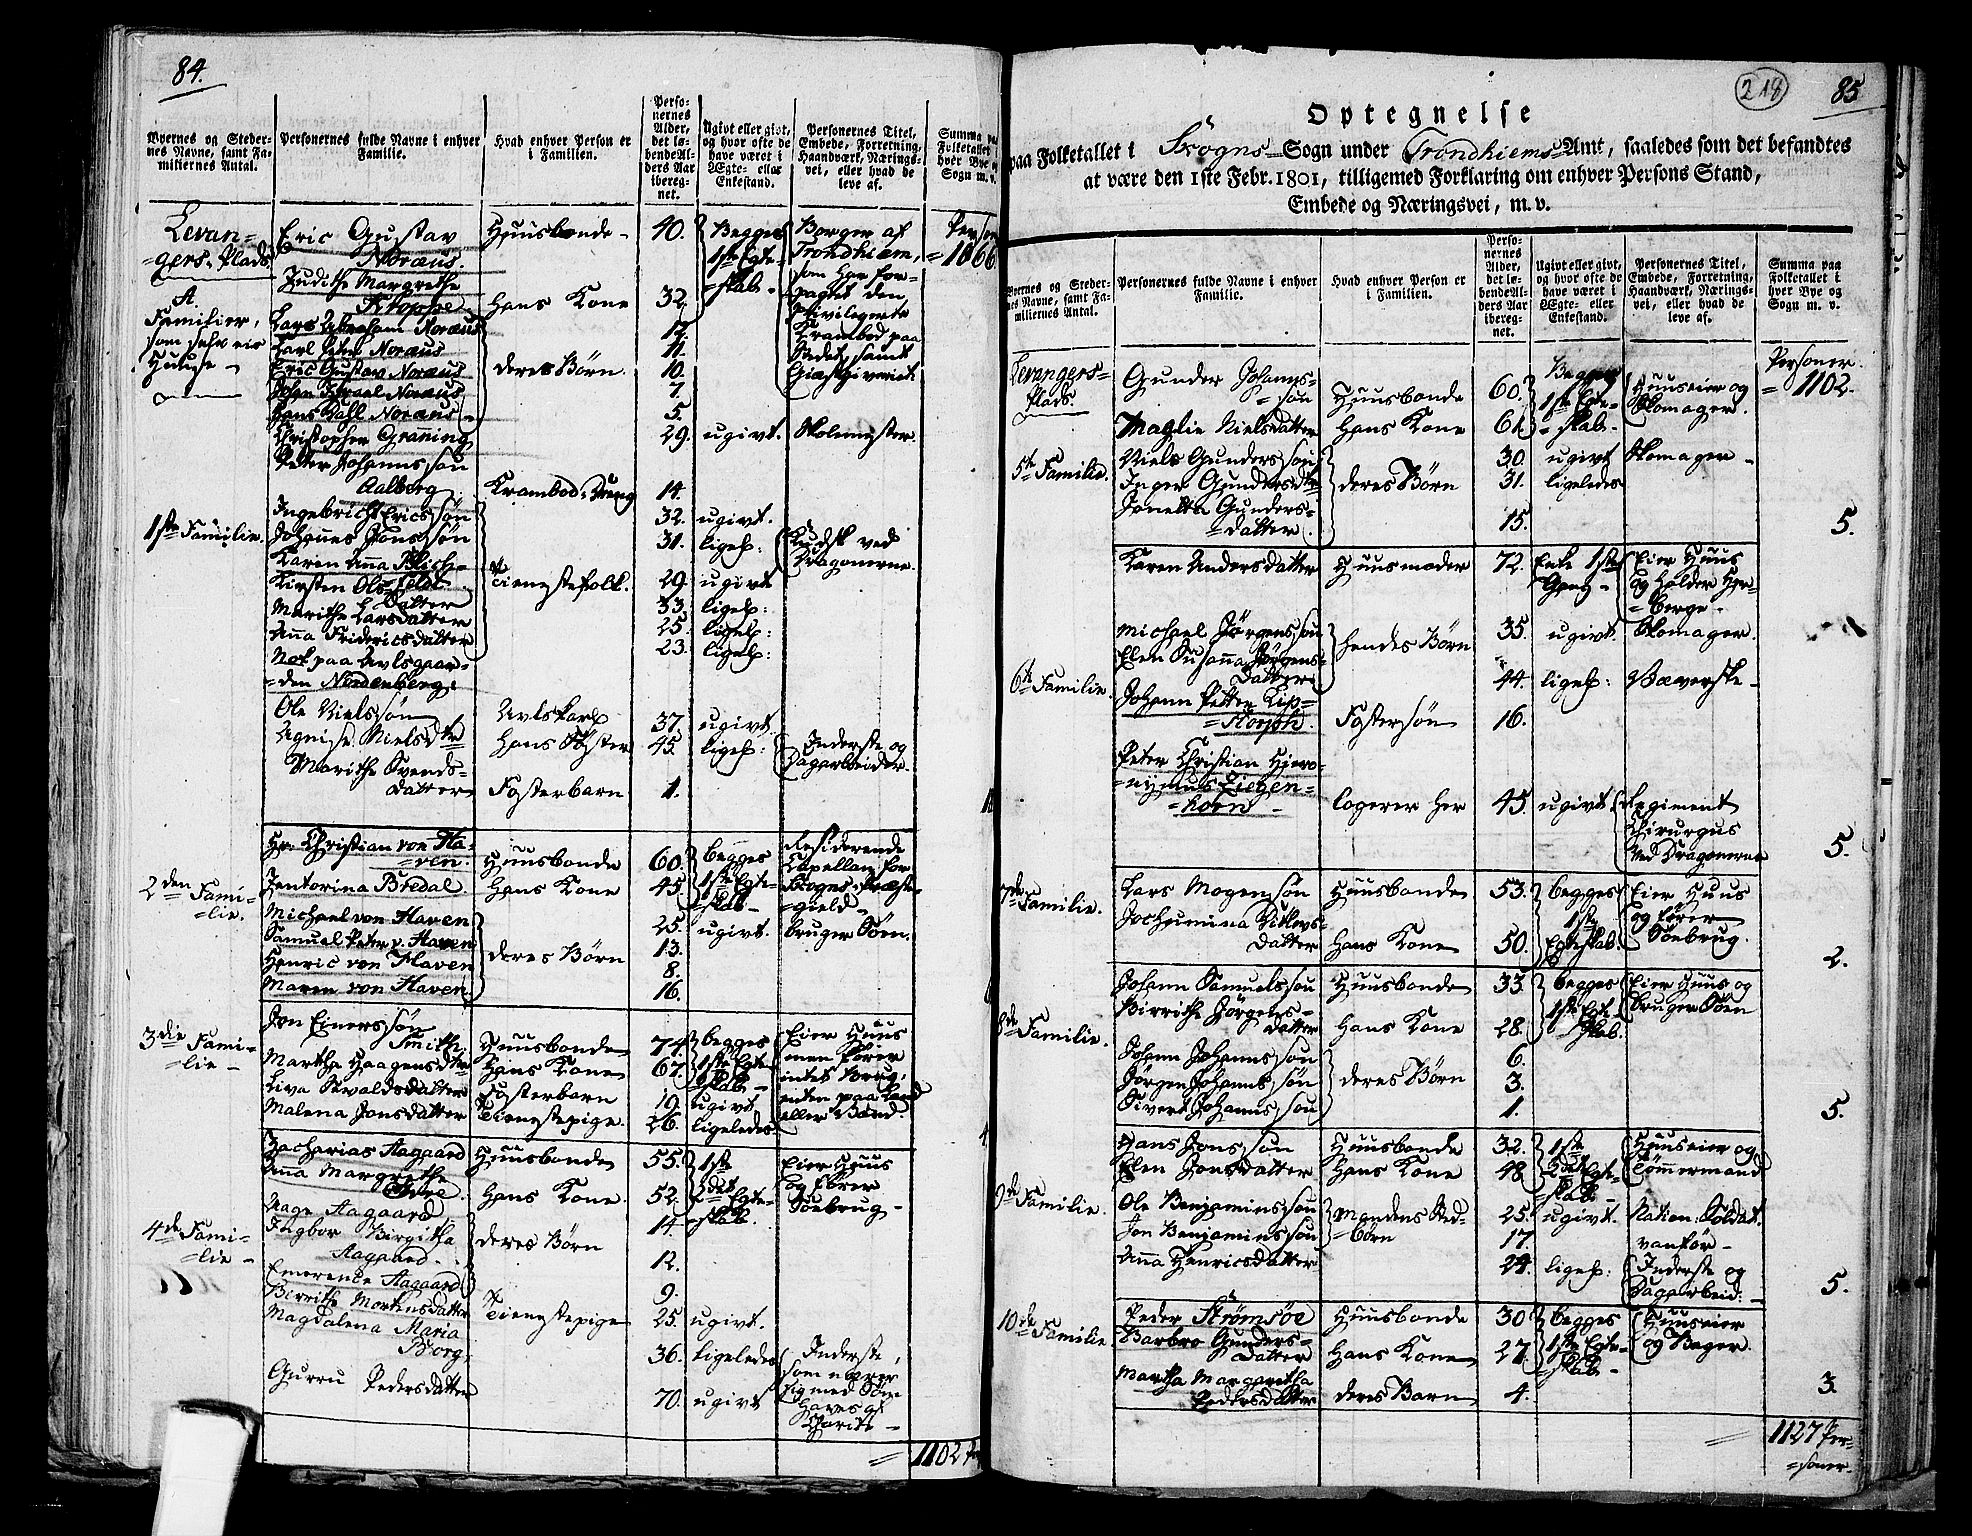 84.
Byernes og Steder-
nes Navne, samt Fa-
miliernes Antal.
Personernes fulde Navne i enhver
Familie.
Hvad enhver Person er
i Familien.
Perso-
nernes
Alder,
det lø-
bende Al-
ders Aar
iberegnet.
Ugivt eller givt,
og hvor ofte de
have været i
Ægte- eller
Enkestand.
Personernes Titel,
Embede, Forretning,
Haandværk, Nærings-
vei, eller hvad de
leve af.
Summa paa
Folketallet
hver Bye og
Sogn m. v.
Levan-
=gers-Plads
A.
Familier,
som selv eie
Huuse -
1ste Familie.
Eric Gustav
Noræus.
Huusbonde -
40.
Begges
1ste Egte-
skab -
Borger af
Trondhiem,
som har for-
pagtet den
privilegerte
Krambod paa
Stedet, samt
Giæstgiveriet
= 1066
Judithe Margrethe
Kroppe
Hans Kone
32.
Lars Abraham Noræus
12.
Carl Peter Noræus
11.
Eric Gustav Noræus
deres Børn
10.
Johan Israel Noræus
7.
Hans Dahl Noræus
5
Christopher Granning
29.
ugivt.
Skolemester.
Peter Johannssøn
Aalborg
Krambod-Dreng
14.
Ingebricht Ericssøn
32.
ugivt.
Johannes Jonssøn
31.
ligel:
Kudsk ved
Dragonerne.
Karen Anna Blich-
=feldt
Tienestefolk.
29.
ugivt
Kirsten Ols-
Datter
33.
ligel:
Marithe Larsdatter
25.
ligel:
Anna Fridericsdatter
23.
ligel:
Nok paa Avlsgaar-
=den Nordenberg:
Ole Nielssøn
Avlskarl
37.
ugivt.
Agnise Nielsdtr
Hans Søster
45.
ligel:
Inderste og
Dagarbeider.
Marithe Svends-
datter
Fosterbarn
1.
2den Fami-
=lie.
Hr. Christian von Ha-
=ven.
Huusbonde
60.
begges
1ste Egte-
=skab -
Residerende
Capellan for
Skogns Præste-
=gield -
bruger Søen.
Jentorina Bredal.
Hans Kone
45.
Michael von Haven
25.
ugivt.
Samuel Peter v. Haven
deres Børn
13.
Henric von Haven
8.
Maren von Haven
16.
3die Fami-
=lie -
Jon Einerssøn
Smith.
Huusbonde
74.
begges
1ste Egte-
skab -
Eier Huus
men fører
intet Brug,
enten paa Land
eller Vand.
Martha Haagensdtr
Hans Kone
67.
Liva Sivaldsdatter
Fosterbarn
19.
ugivt
Malena Jonsdatter
Tienestepige.
26.
ligeledes
4de Fami-
=lie -
Zacharias Aagaard
Huusbonde
55.
1ste
2det Egte-
skab.
Eier Huus
og fører
Søebrug -
Anna Margrethe
Hans Kone.
52.
Aage Aagaard
14.
Ingbor Birgitha
Aagaard -
deres Børn
12.
Emerence Aagaard
9.
Berrithe Mortensdatter
Tienestepige
25.
ugivt.
Magdalena Maria
Borg
36.
ligeledes
Inderste,
som nærer
sig med Søm
Gurru Pedersdatter
70.
ugivt
haves af
Charite -
= 1102 Per
218
85
Optegnelse
paa Folketallet i Skogns Sogn under Trondhiems Amt, saaledes som det befandtes
at være den 1ste Febr. 1801, tilligemed Forklaring om enhver Persons Stand,
Embede og Næringsvei, m. v.
Byernes og Steder-
nes Navne, samt Fa-
miliernes Antal.
Personernes fulde Navne i enhver
Familie.
Hvad enhver Person er
i Familien.
Perso-
nernes
Alder,
det lø-
bende Al-
ders Aar
iberegnet.
Ugivt eller givt,
og hvor ofte de
have været i
Ægte- eller
Enkestand.
Personernes Titel,
Embede, Forretning,
Haandværk, Nærings-
vei, eller hvad de
leve af.
Summa paa
Folketallet i
hver Bye og
Sogn m. v.
Levangers-
Plads.
Personer.
= 1102.
5te Familie.
Gunder Johans-
=søn
Huusbonde
60.
Begges
1ste Egte-
=skab -
Huuseier og
Skomager.
Maglie Nielsdatter
Hans Kone
61.
Niels Gunderssøn
deres Børn
30.
ugivt
Skomager -
Inger Gundersdtr
31.
ligeledes
Jonetta Gunders-
=datter
15.
5.
6te Familie.
Karen Andersdatter
Huusmoder
72.
Enke 1ste
Gang -
Eier Huus
og holder Her-
=berge -
Michael Jørgenssøn
hendes Børn
35.
ugivt.
Skomager.
Elen Susanna Jørgens-
Datter
44.
ligel:
Væverske -
Johann Petter Lip-
=storph.
Fostersøn
16.
Peter Christian Hiero-
=nymus Ziegen-
=horn -
logerer her
45.
ugivt.
Regiment
Chirurgus
ved Dragonerne
5.
7de Familie.
Lars Mogenssøn
Huusbonde
53.
begges
1ste
Egteskab.
Eier Huus
og fører
Søebrug.
Jochumina Ditlevs-
datter
Hans Kone
50.
2.
8de Familie.
Johann Samuelssøn
Huusbonde
33.
begges
1ste Egte-
skab.
Eier Huus og
bruger Søen
Birrithe Jørgens-
datter
Hans Kone
28.
Johann Johannssøn
6.
Jørgen Johannssøn
deres Børn
3.
Sivert Johannssøn
1.
5.
9de Familie.
Hans Jonssøn
Huusbonde
32.
1ste
2det Egte-
skab -
Huuseier og
Tømmermand
Elen Jonsdatter
Hans Kone
48.
Ole Benjaminssøn
Mandens Sted-
=børn
25.
ugivt.
Nation: Soldat.
Jon Benjaminssøn
17.
vanfør -
Anna Henricsdatter
24.
ligel:
Inderste og
Dagarbeid:
5.
10de Familie.
Peder Strømsøe
Huusbonde
30
begges
1ste Egte-
skab -
Huuseier
og Bager.
Barbro Gunders-
datter
Hans Kone
27.
Martha Margaritha
Pedersdatter
deres Barn
4.
3.
= 1127 Per-
=soner.